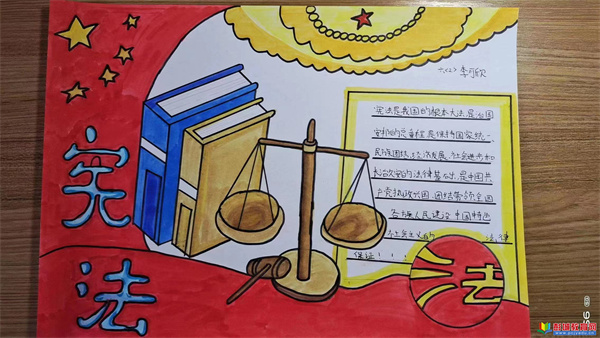 六(2) 李可欣
宪法
宪法是我国的根本大法,是治国
安邦的总章程,是保持国家统一、
民族团结,经济发展,社会进步和
长治久安的法律基础,是中国共
产党执政兴国,团结带领全国
各族人民建设中国特色
社会主义的 法律
保证!
法